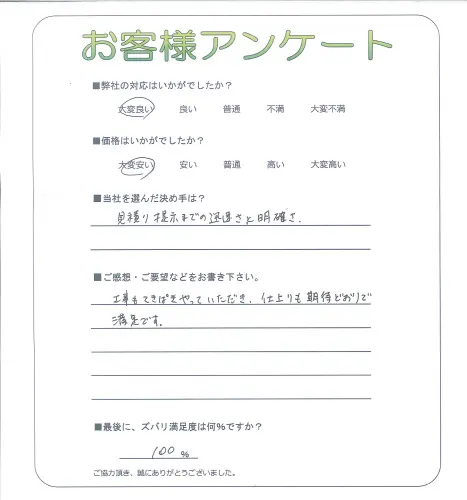 お客様アンケート
■弊社の対応はいかがでしたか?
大変良い 良い 普通 不満 大変不満
■価格はいかがでしたか?
大変安い 安い 普通 高い 大変高い
■当社を選んだ決め手は?
見積り提示までの迅速さと明確さ.
■ご感想・ご要望などをお書き下さい。
工事もてきぱきやっていただき、仕上りも期待どおりで
満足です。
■最後に、ズバリ満足度は何%ですか?
100 %
ご協力頂き、誠にありがとうございました。